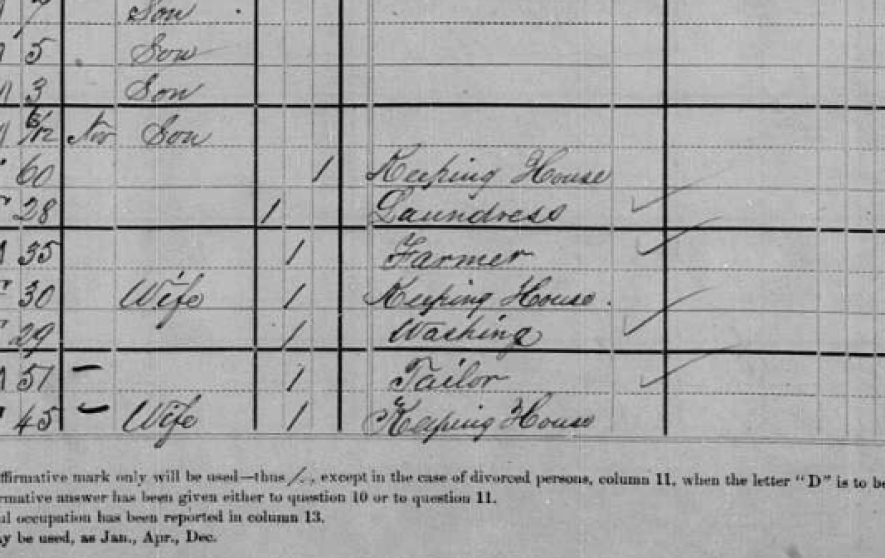 7 Son
5 Son
3 Son
6/12 Nov Son
60 1 Keeping House
28 1 Laundress
35 1 Farmer
30 Wife 1 Keeping House.
29 1 Washing
51 – 1 Tailor
45 – Wife 1 Keeping House
ffirmative mark only will be used—thus /, except in the case of divorced persons, column 11, when the letter "D" is to be
rmative answer has been given either to question 10 or to question 11.
ul occupation has been reported in column 13.
ay be used, as Jan., Apr., Dec.